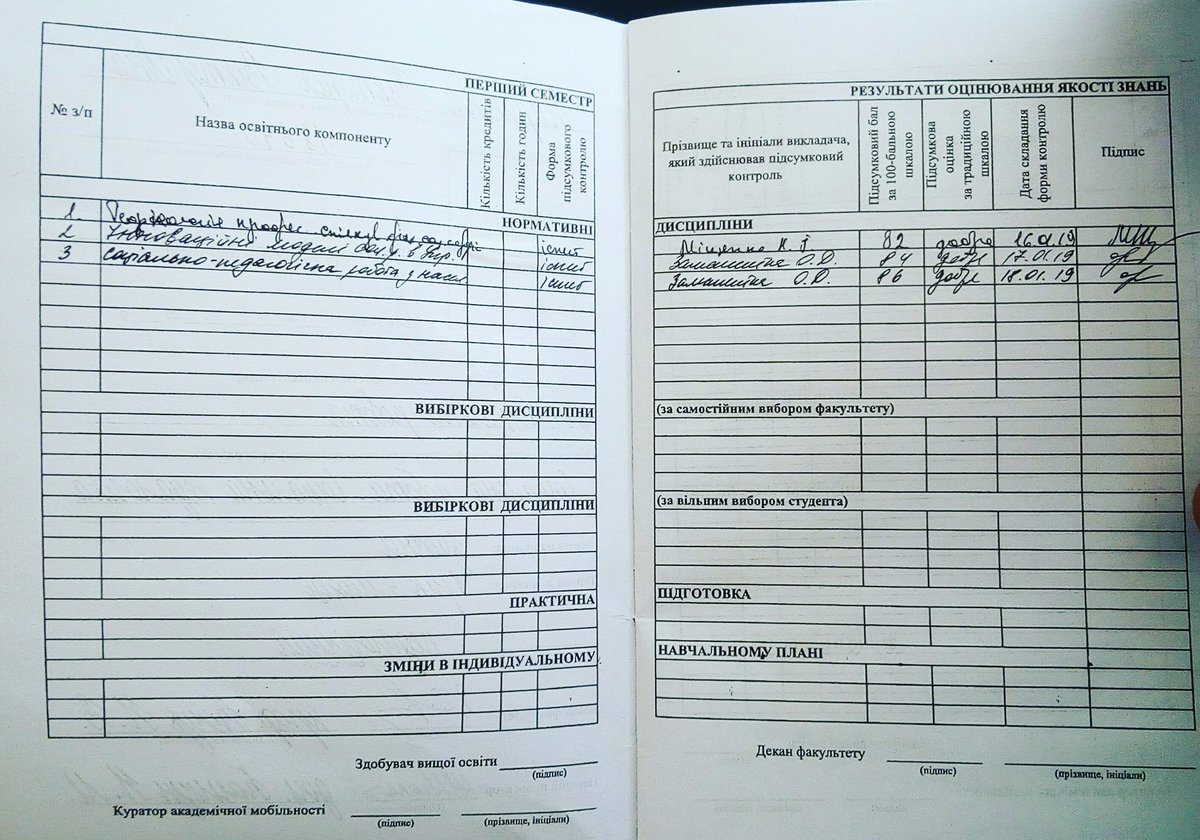 ПЕРШИЙ СЕМЕСТР
№ з/п
Назва освітнього компоненту
Кількість кредитів
Кількість годин
Форма підсумкового контролю
НОРМАТИВНІ
1 іспит
2 Інноваційні моделі іспит
3 соціально-педагогічна робота з іспит
ВИБІРКОВІ ДИСЦИПЛІНИ
ВИБІРКОВІ ДИСЦИПЛІНИ
ПРАКТИЧНА
ЗМІНИ В ІНДИВІДУАЛЬНОМУ
Здобувач вищої освіти
(підпис)
Куратор академічної мобільності
(підпис) (прізвище, ініціали)
РЕЗУЛЬТАТИ ОЦІНЮВАННЯ ЯКОСТІ ЗНАНЬ
Прізвище та ініціали викладача,
який здійснював підсумковий
контроль
Підсумковий бал
за 100-бальною
шкалою
Підсумкова
оцінка
за традиційною
шкалою
Дата складання
форми контролю
Підпис
ДИСЦИПЛІНИ
82 добре 16.01.19
О.Д. 84 добре 17.01.19
О.Д. 86 добре 18.01.19
(за самостійним вибором факультету)
(за вільним вибором студента)
ПІДГОТОВКА
НАВЧАЛЬНОМУ ПЛАНІ
Декан факультету
(підпис) (прізвище, ініціали)